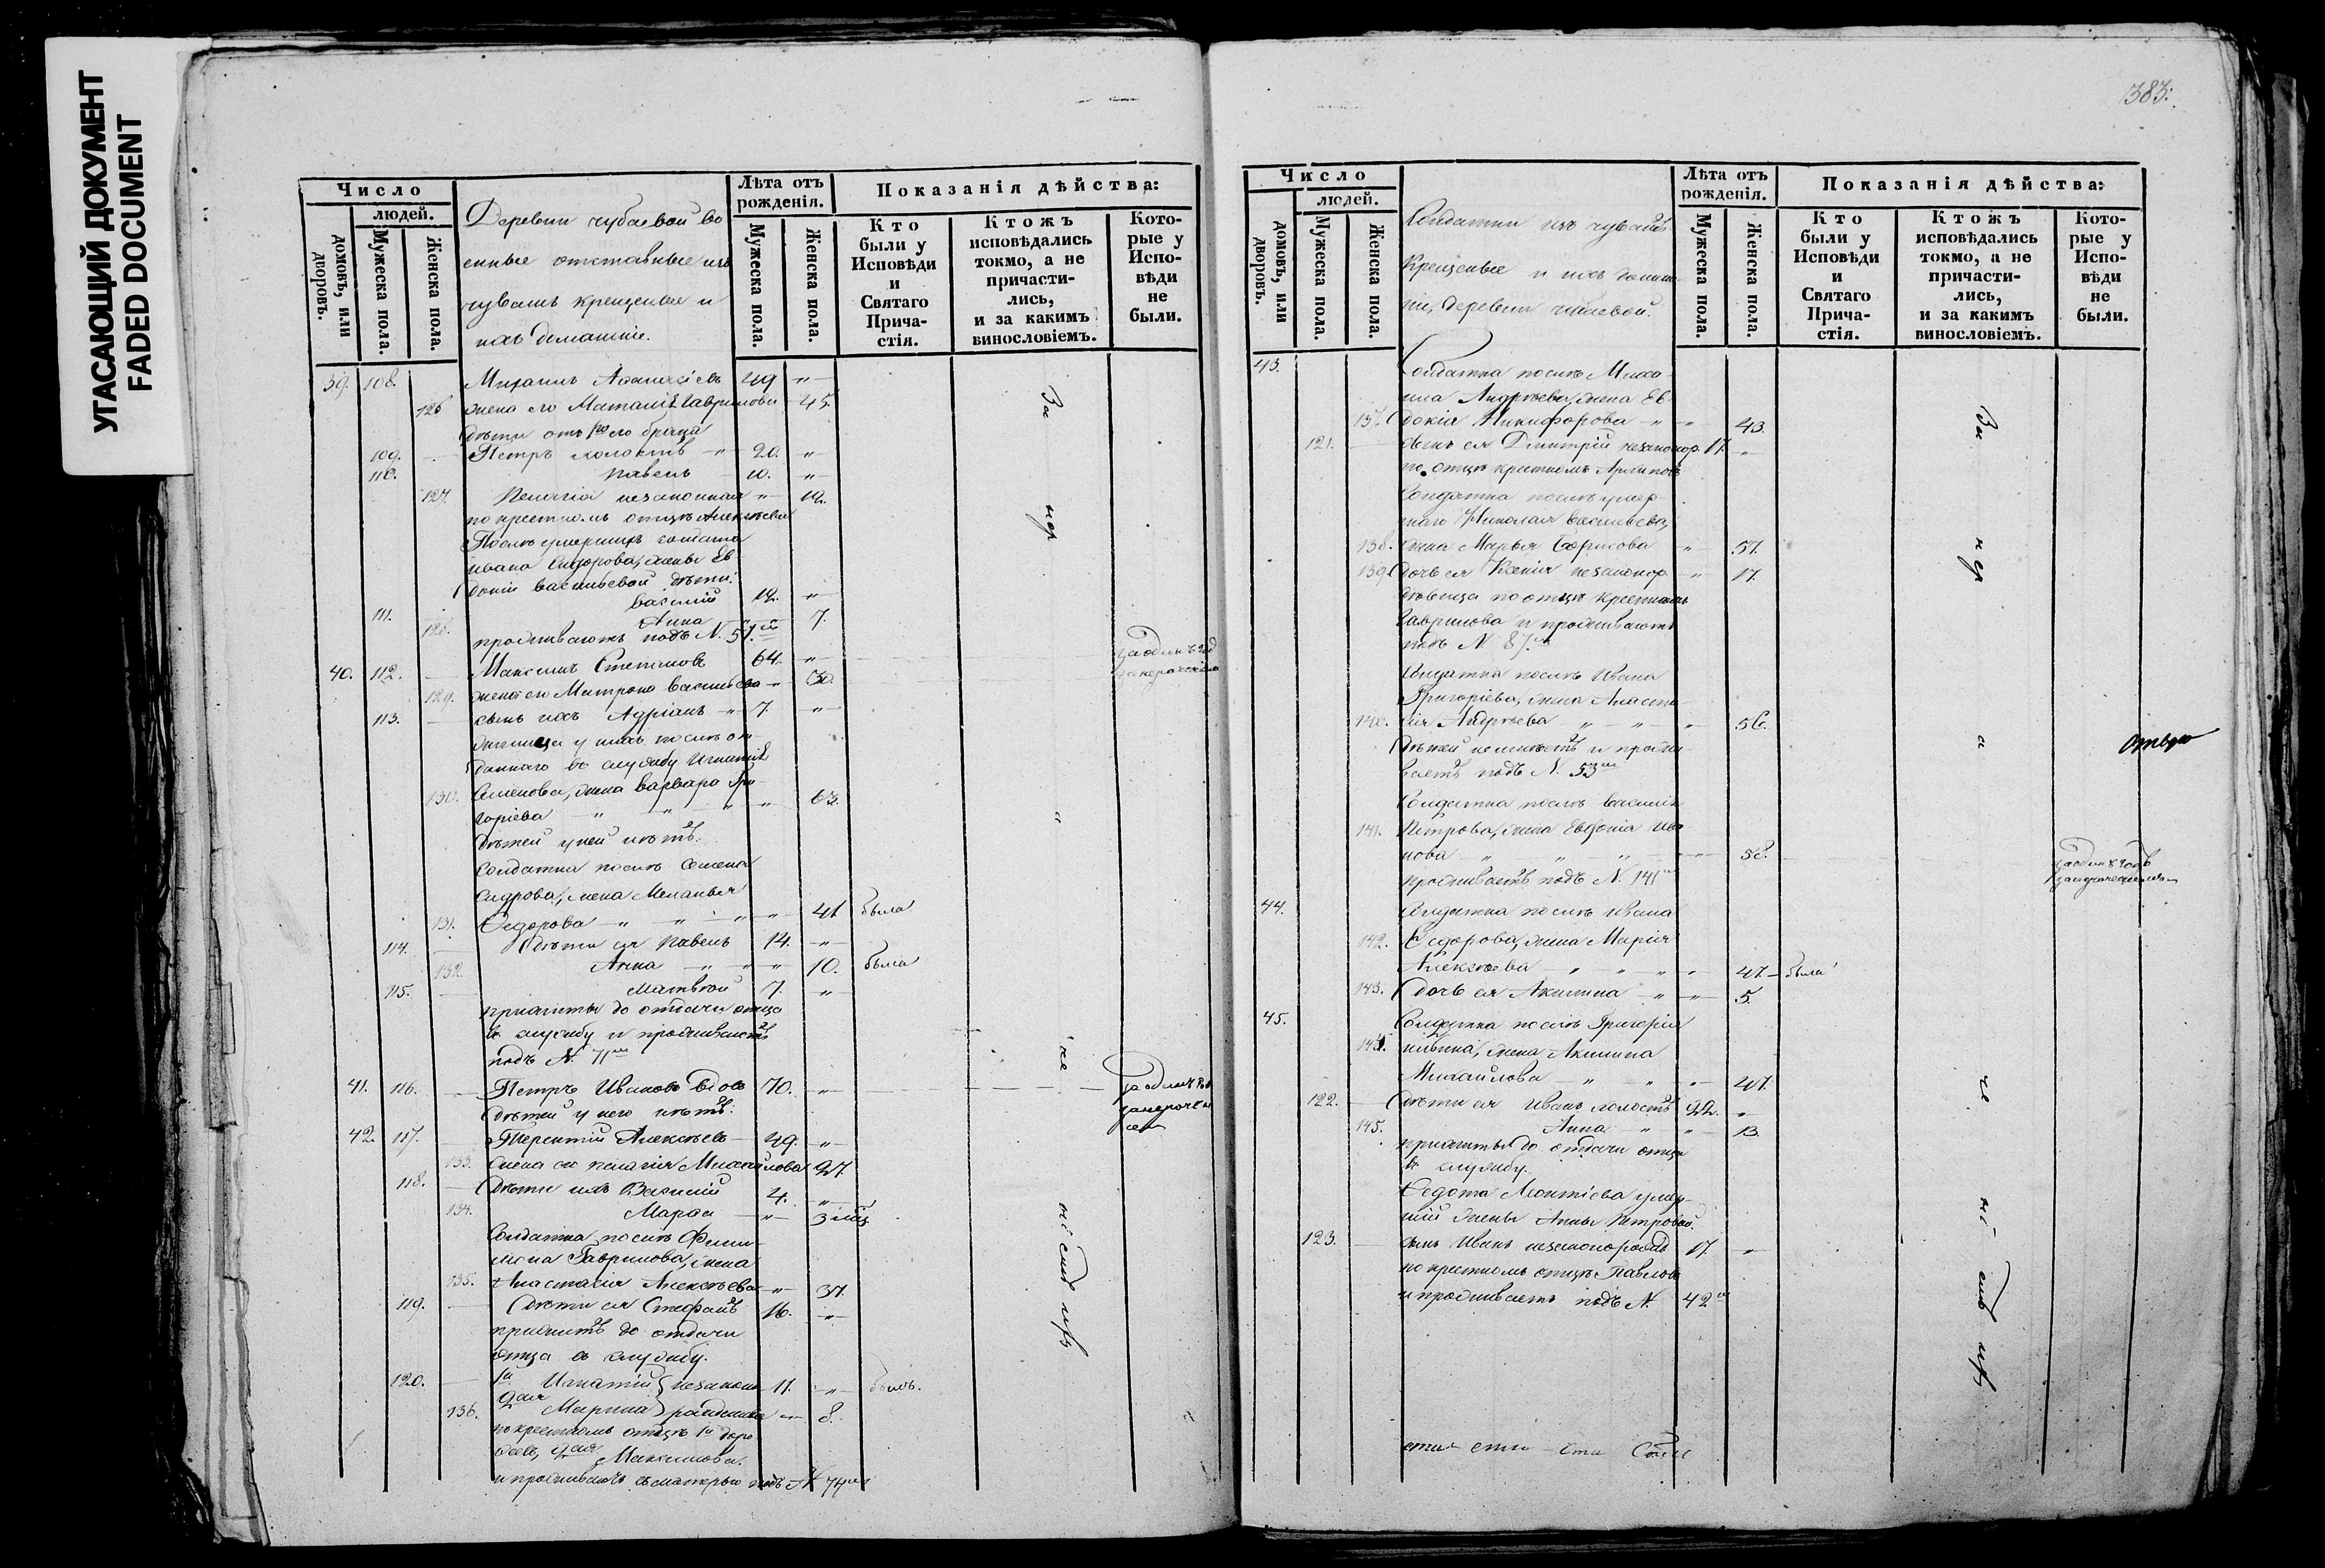 УГАСАЮЩИЙ ДОКУМЕНТ
FADED DOCUMENT
Число
людей.
домовъ, или дворовъ.
Мужеска пола.
Женска пола.
Деревни чубаевой во
енные отставные изъ
чувашъ крещеные и
ихъ домашніе.
Лѣта отъ рожденія.
Мужеска пола.
Женска пола.
Показанія дѣйства:
Кто были у Исповѣди и Святаго Причастія.
Ктожъ исповѣдались токмо, а не причастились, и за какимъ винословіемъ.
Которые у Исповѣди не были.
39. 108. 49 "
126 жена его Гаврилова 45.
дѣти отъ его брака
109. Петръ холостъ " 20. "
110. Павелъ 10. "
127. Пелагія незаконная " 12.
по крестномъ отцѣ Алексѣева
Послѣ умершихъ солдата
Ивана Сидорова, жены Ев
докіи Васильевой дѣти:
111. Василій 12. "
128. Анна 7.
проживаютъ подъ N. 51.
40. 112. Максимъ Степановъ 64. "
129. жена его Матрона Васильева "
113. сынъ ихъ Адріанъ " 7. "
у нихъ послѣ от
даннаго въ службу Игнатія
130. Семенова, жена Варвара Гри
горіева " " " " 63.
дѣтей у ней нѣтъ.
Солдатка послѣ Семена
жена Меланья
131. Ѳедорова " " " " 41 была
114. дѣти ея Павелъ 14. "
132. Анна " " " 10. была
115. Матвѣй 7. "
прижиты до отдачи отца
въ службу и проживаютъ
подъ N. 71
41. 116. Петръ Ивановъ вдовъ 70. "
дѣтей у него нѣтъ.
42. 117. Терентій Алексѣевъ 49. "
133. жена его Пелагія Михайлова 27.
118. дѣти ихъ Василій 4. "
134. Марѳа " 3
Солдатка послѣ Фили
мона Гаврилова, жена
135. Анастасія Алексѣева " 37.
119. дѣти ея Стефанъ 16. "
прижитъ до отдачи
отца въ службу.
120. Игнатій незакон 11. " былъ.
136. Марина рожденная " 8.
по крестномъ отцѣ
Максимова.
и проживаютъ съ матерью подъ N 74
За
нер
а
че
ні
емъ
383.
Число
людей.
домовъ, или дворовъ.
Мужеска пола.
Женска пола.
Солдатки изъ чувашъ
крещеные и ихъ домаш
ніе, деревни чубаевой.
Лѣта отъ рожденія.
Мужеска пола.
Женска пола.
Показанія дѣйства:
Кто были у Исповѣди и Святаго Причастія.
Ктожъ исповѣдались токмо, а не причастились, и за какимъ винословіемъ.
Которые у Исповѣди не были.
43. Солдатка послѣ Миха
ила Андреева, жена Ев
137. докія Никифорова " " 43.
121. сынъ ея Димитрій незаконор. 17. "
по отцѣ крестномъ Архиповъ
Солдатка послѣ умер
шаго Николая Васильева,
138. жена Марья Борисова " 57.
139. дочь ея Ксенія незаконор. " 17.
дѣвица по отцѣ крестномъ
Гаврилова и проживаютъ
подъ N. 87.
Солдатка послѣ Ивана
Григоріева, жена Анаста
140. сія Андреева " " " 56.
дѣтей неимѣетъ и прожи
ваетъ подъ N. 53
Солдатка послѣ Василія
141. Петрова, жена Евдокія Ива
нова " " " " 58.
проживаетъ подъ N. 141
44. Солдатка послѣ Ивана
142. Ѳедорова, жена Марія
Алексѣева " " " " 47. была
143. дочь ея Акилина " " 5.
45. Солдатка послѣ Григорія
144. Ильина, жена Акилина
Михайлова " " " 47.
122. дѣти ея Иванъ холостъ 22. "
145. Анна " " 13.
прижиты до отдачи отца
въ службу.
Ѳедота Леонтіева умер
шій жены Анны Петровой.
123. сынъ Иванъ незаконорожд 17. "
по крестномъ отцѣ Павловъ
и проживаетъ подъ N. 42
За
нер
а
че
ні
емъ